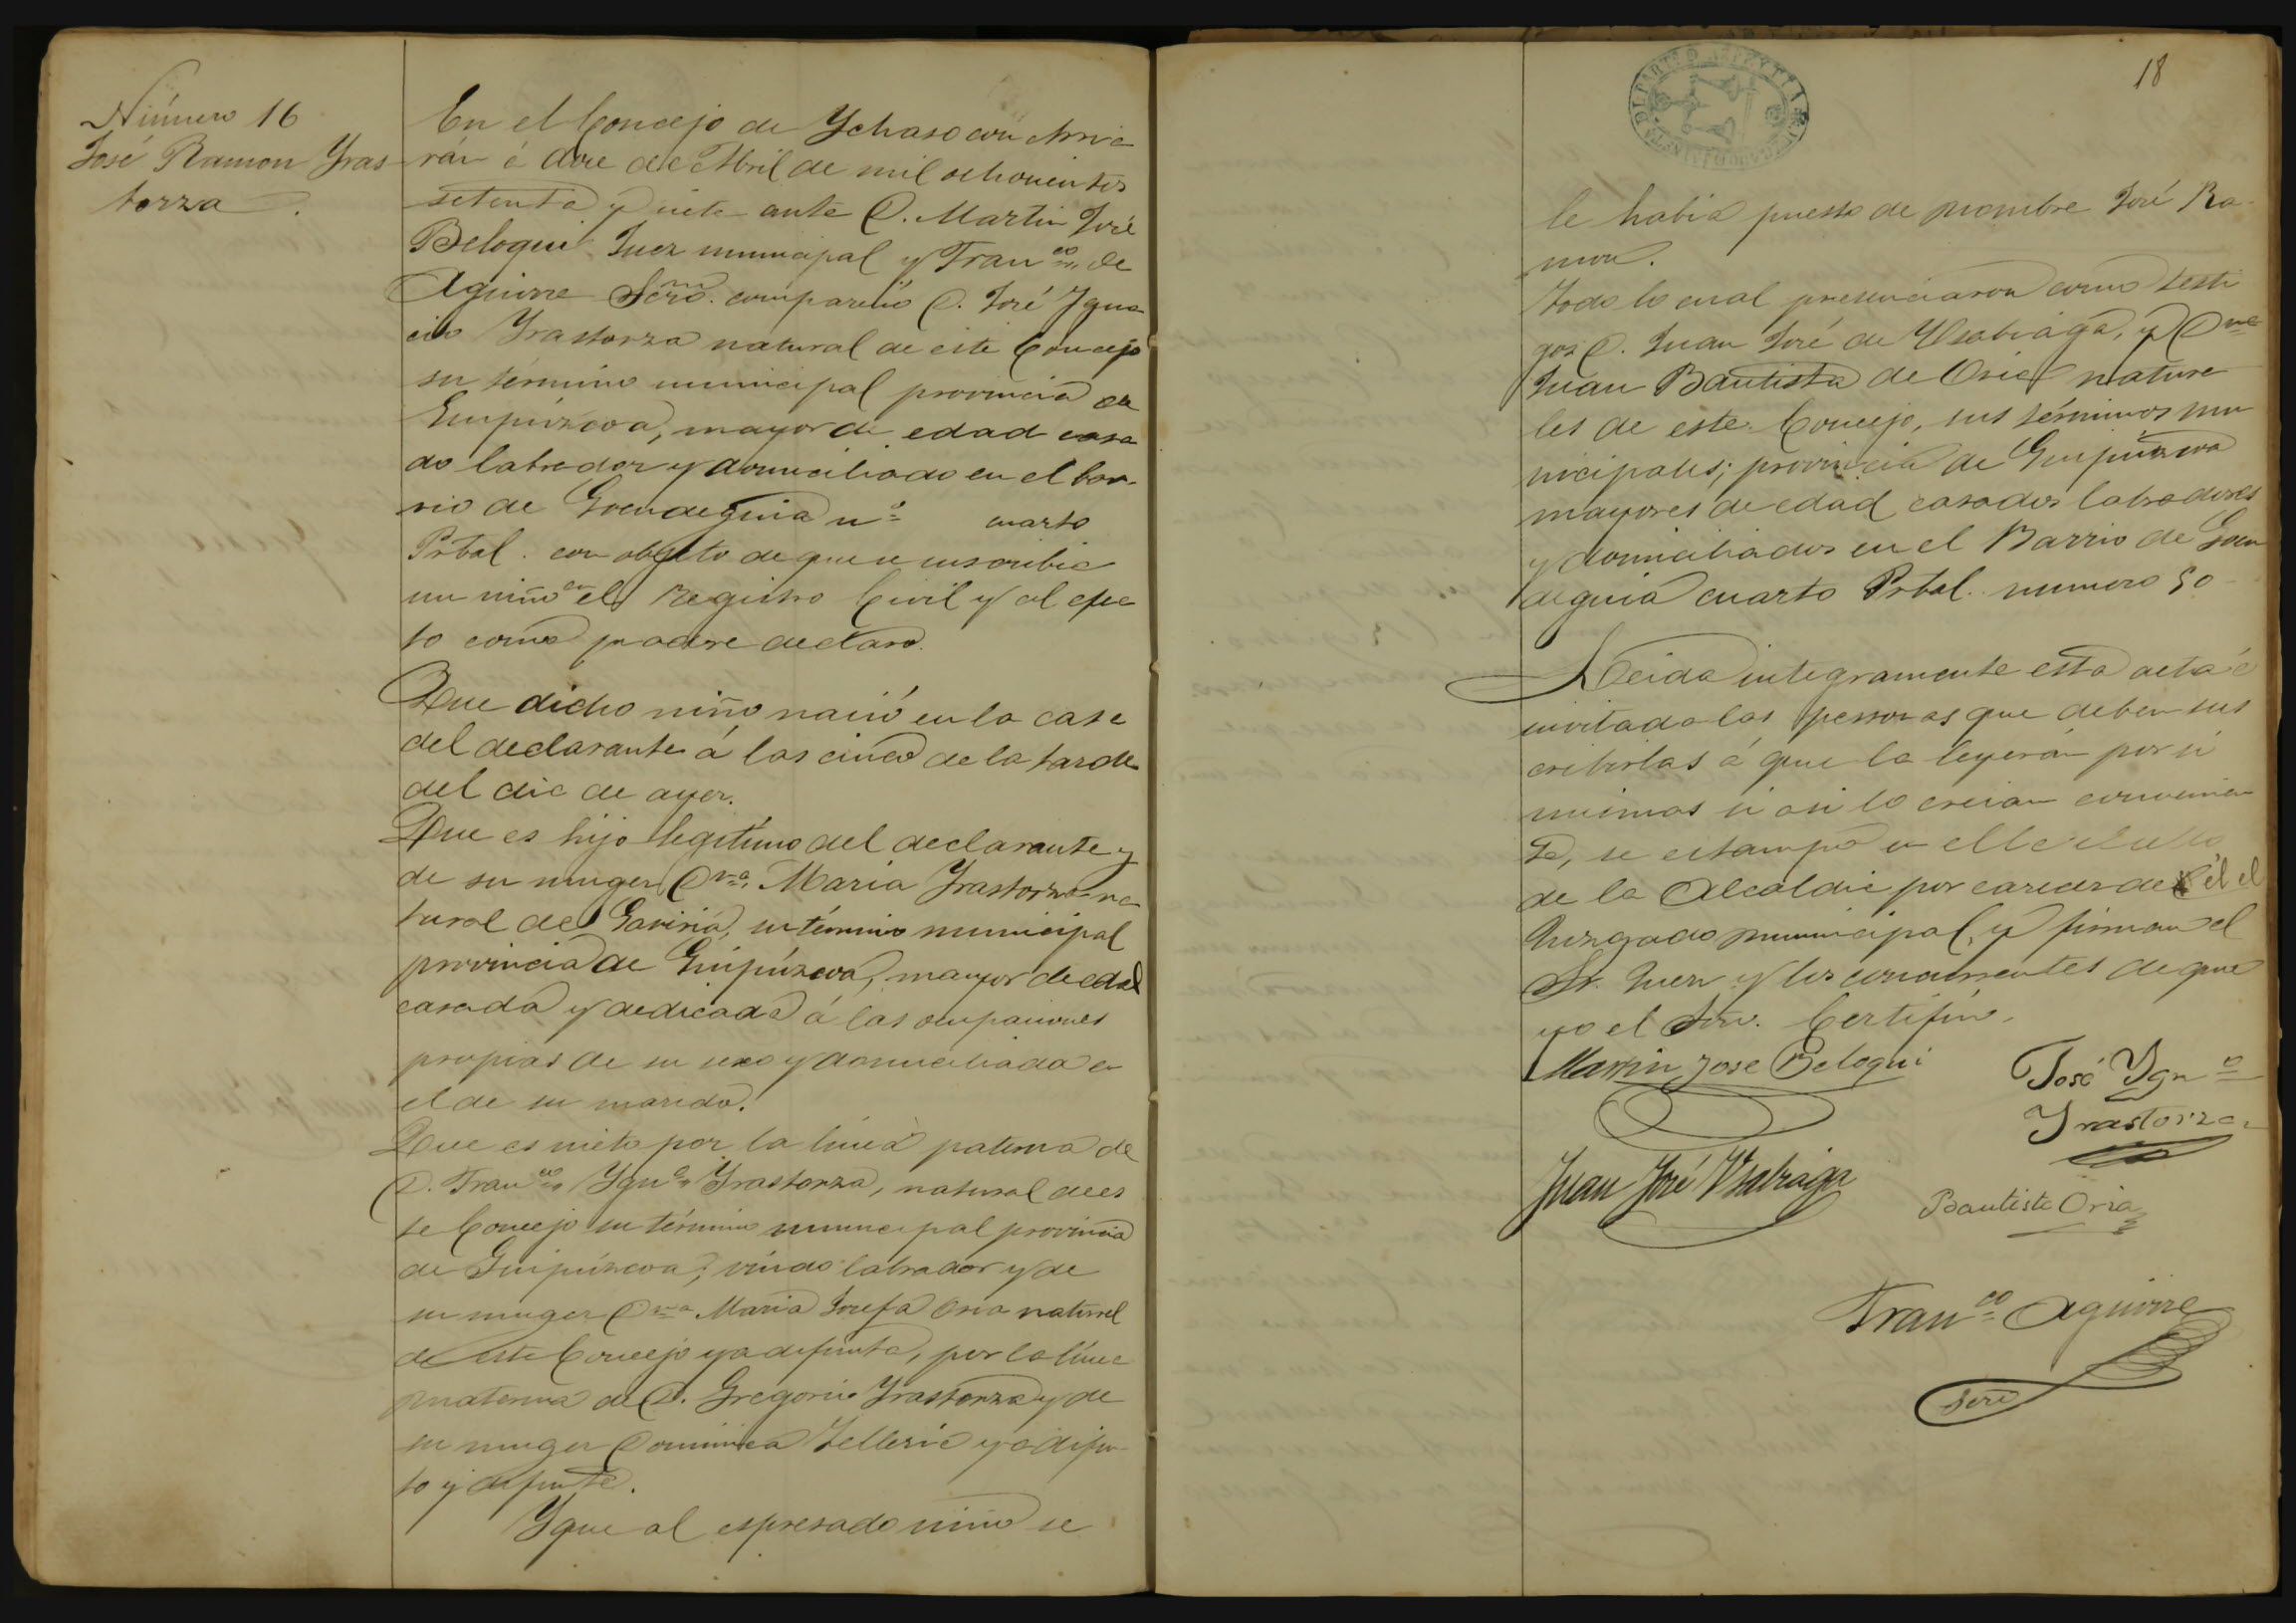 Número 16
José Ramon Yras
torza.
En el Concejo de Ychaso con Arria
rán á doce de Abril de mil ochocientos
setenta y siete ante D. Martin José
Beloqui Juez municipal y Fran.co de
Aguirre Scrio. compareció D. José Ygna
cio Yrastorza natural de este Concejo
su término municipal provincia de
Guipúzcoa, mayor de edad casa
do labrador y domiciliado en el bar-
rio de Goendeguia n.º cuarto
Prbal. con objeto de que se inscribia
un niño en el Registro Civil y al efec
to como padre declaró.
Que dicho niño nació en la casa
del declarante á las cinco de la tarde
del dia de ayer.
Que es hijo legitimo del declarante y
de su muger D.na Maria Yrastorza na
tural de Gaviria, su término municipal
provincia de Guipúzcoa, mayor de edad
casada y dedicada á las ocupaciones
propias de su sexo y domiciliada en
el de su marido.
Que es nieto por la línea paterna de
D. Fran.co Ygn.o Yrastorza, natural de es
te Concejo su término municipal provincia
de Guipúzcoa, viudo labrador y de
su muger D.na Maria Josefa Oria natural
de este Concejo ya difunta, por la línea
materna de D. Gregorio Yrastorza y de
su muger Dominica Telleria ya difun
to y difunta.
Y que al espresado niño se
18
le habia puesto de nombre José Ra
mon.
Todo lo cual presenciaron como testi
gos D. Juan José de Usabiaga, y D.n
Juan Bautista de Oria naturа
les de este Concejo, sus términos mu
nicipales; provincia de Guipúzcoa
mayores de edad casados labradores
y domiciliados en el Barrio de Goen
deguia cuarto Prbal. numero 50
Leida integramente esta acta é
invitadas las personas que deben sus
cribirlas á que la leyerán por si
mismas si asi lo creian convenien
te, se estampó en ella el sello
de la Alcaldia por carecer de él el
Juzgado municipal, y firman el
Sr. Juez y los concurrentes de que
yo el Srio. Certifico.
Martin Jose Beloqui
José Ygn.o
Yrastorza
Juan José Usabiaga
Bautista Oria
Fran.co Aguirre
Scrio